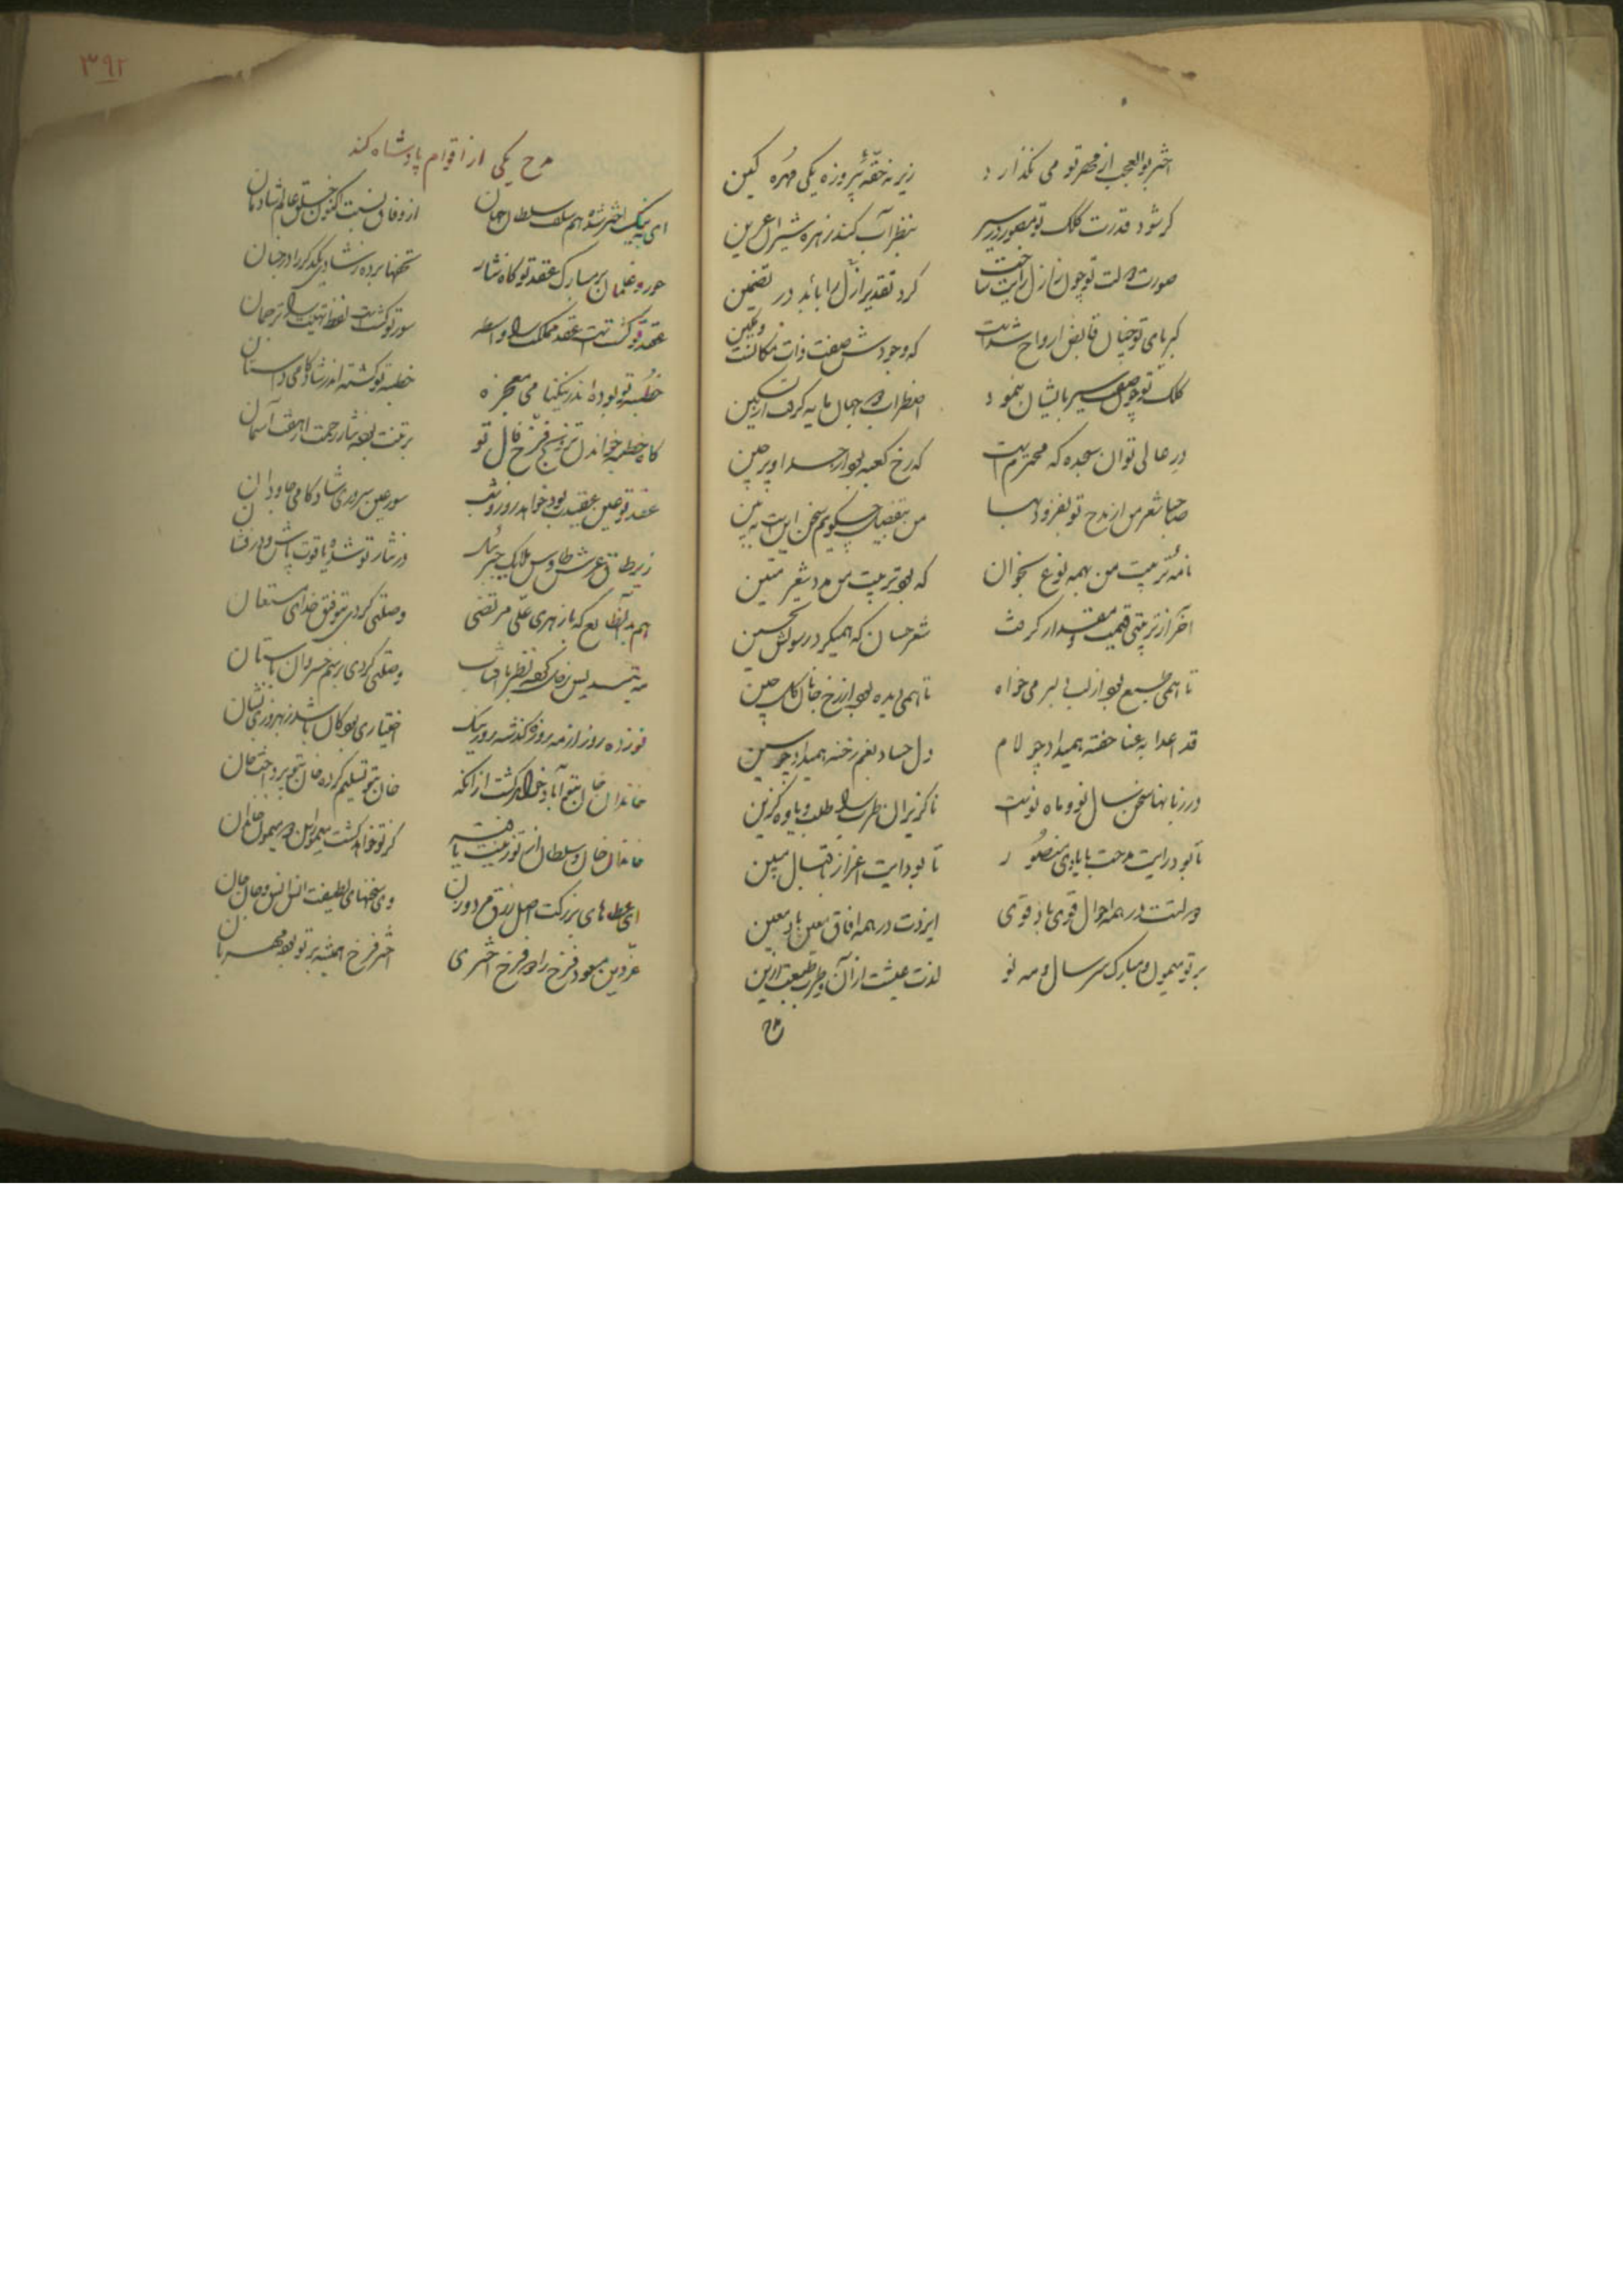 اختر بوالعجب از قهر تو می نگذارد
زیر نه حقهٔ پیروزه یکی مهره کین
گر شود قدرت کلک تو مصور در سر
بنظر آب کند زهره شیران عرین
صورت دولت تو چون ز ازل رایت ساخت
کرد تقدیر ازل را بابد در تضمین
کبریای تو چنان قابض ارواح شدست
که وجودش صفت ذات مکانست و مکین
کلک تو چون صفت سیر بایشان بنمود
اضطراب دو جهان مایه گرفت از تسکین
در عالی تو ان سجده که محترمیست
که رخ کعبه بود از حسد او پر چین
صاحبا شعر من از مدح تو بفزود بها
من بتفصیل چگویم سخن اینست ببین
نامه تربیت من بهمه نوع بخوان
که بود تربیت من مدد شعر متین
آخر از تربیتی قیمت و مقدار گرفت
شعر حسان که همیکرد رسولش تحسین
تا همی طبع بود از لب دلبر می خواه
تا همی دیده بود از رخ جانان گل چین
قد اعدا به عنا خفته همیدار چو لام
دل حساد بغم رخنه همیدار چو سین
در زبانها سخن سال نو و ماه نوست
ناگزیران طرب را طلب و باوه گزین
تا بود رایت مدحت بایادی منصور
تا بود رایت اعزاز اقبال مبین
دولتت در همه احوال قوی باد قوی
ایزدت در همه افاق معین باد معین
بر تو میمون و مبارک سر سال و مه نو
لذت عیشت از آن و طرب طبعت ازین
۳۹۲
مدح یکی از اقوام پادشاه کند
ای به نیک اختر شده هم سلف سلطان جهان
از وفاق نسبتت اکنون خلق عالم شادمان
حور و غلمان بر مبارک عقد تو گاه نثار
تحفها برده ز شادی یکدگر را در جنان
عقد تو گشتست عقد مملکت را واسطه
سور تو گشتست لفظ تهنیت را ترجمان
خطبه تو بوده اندر نیکنامی معجزه
خطبه تو گشته اندر شادکامی داستان
گاه خطبه خواندن تزویج فرخ فال تو
بر تنت بوده نثار رحمت از هفت آسمان
عقد تو عین عقیدت بود خواهد روز و شب
سور عین سروری شادکامی جاودان
زیر طاق عرش طاوس ملایک جبرئیل
در نثار تو شده یاقوت پاش و در فشان
هم بدان طالع که با زهری علی مرتضی
وصلتی کردی بتوفیق خدای مستعان
وصلتی کردی برسم خسروان باستان
نوزده روز از مه روزه گذشته روز نیک
اختیاری بود کان باشد ز بهروزی نشان
خاندان خان بتو آباد خواهد گشت از آنکه
خان بتو تسلیم کرده خان بتو پرداخت جان
خاندان خان و سلطان از تو زینت یافتست
ای عطاهای بزرگت اصل رزق مرد و زن
وی سخنهای لطیفت انس انس و جان جان
عز دین مسعود فرخ زاد فرخ اختری
اختر فرخ همیشه بر تو بوده مهربان